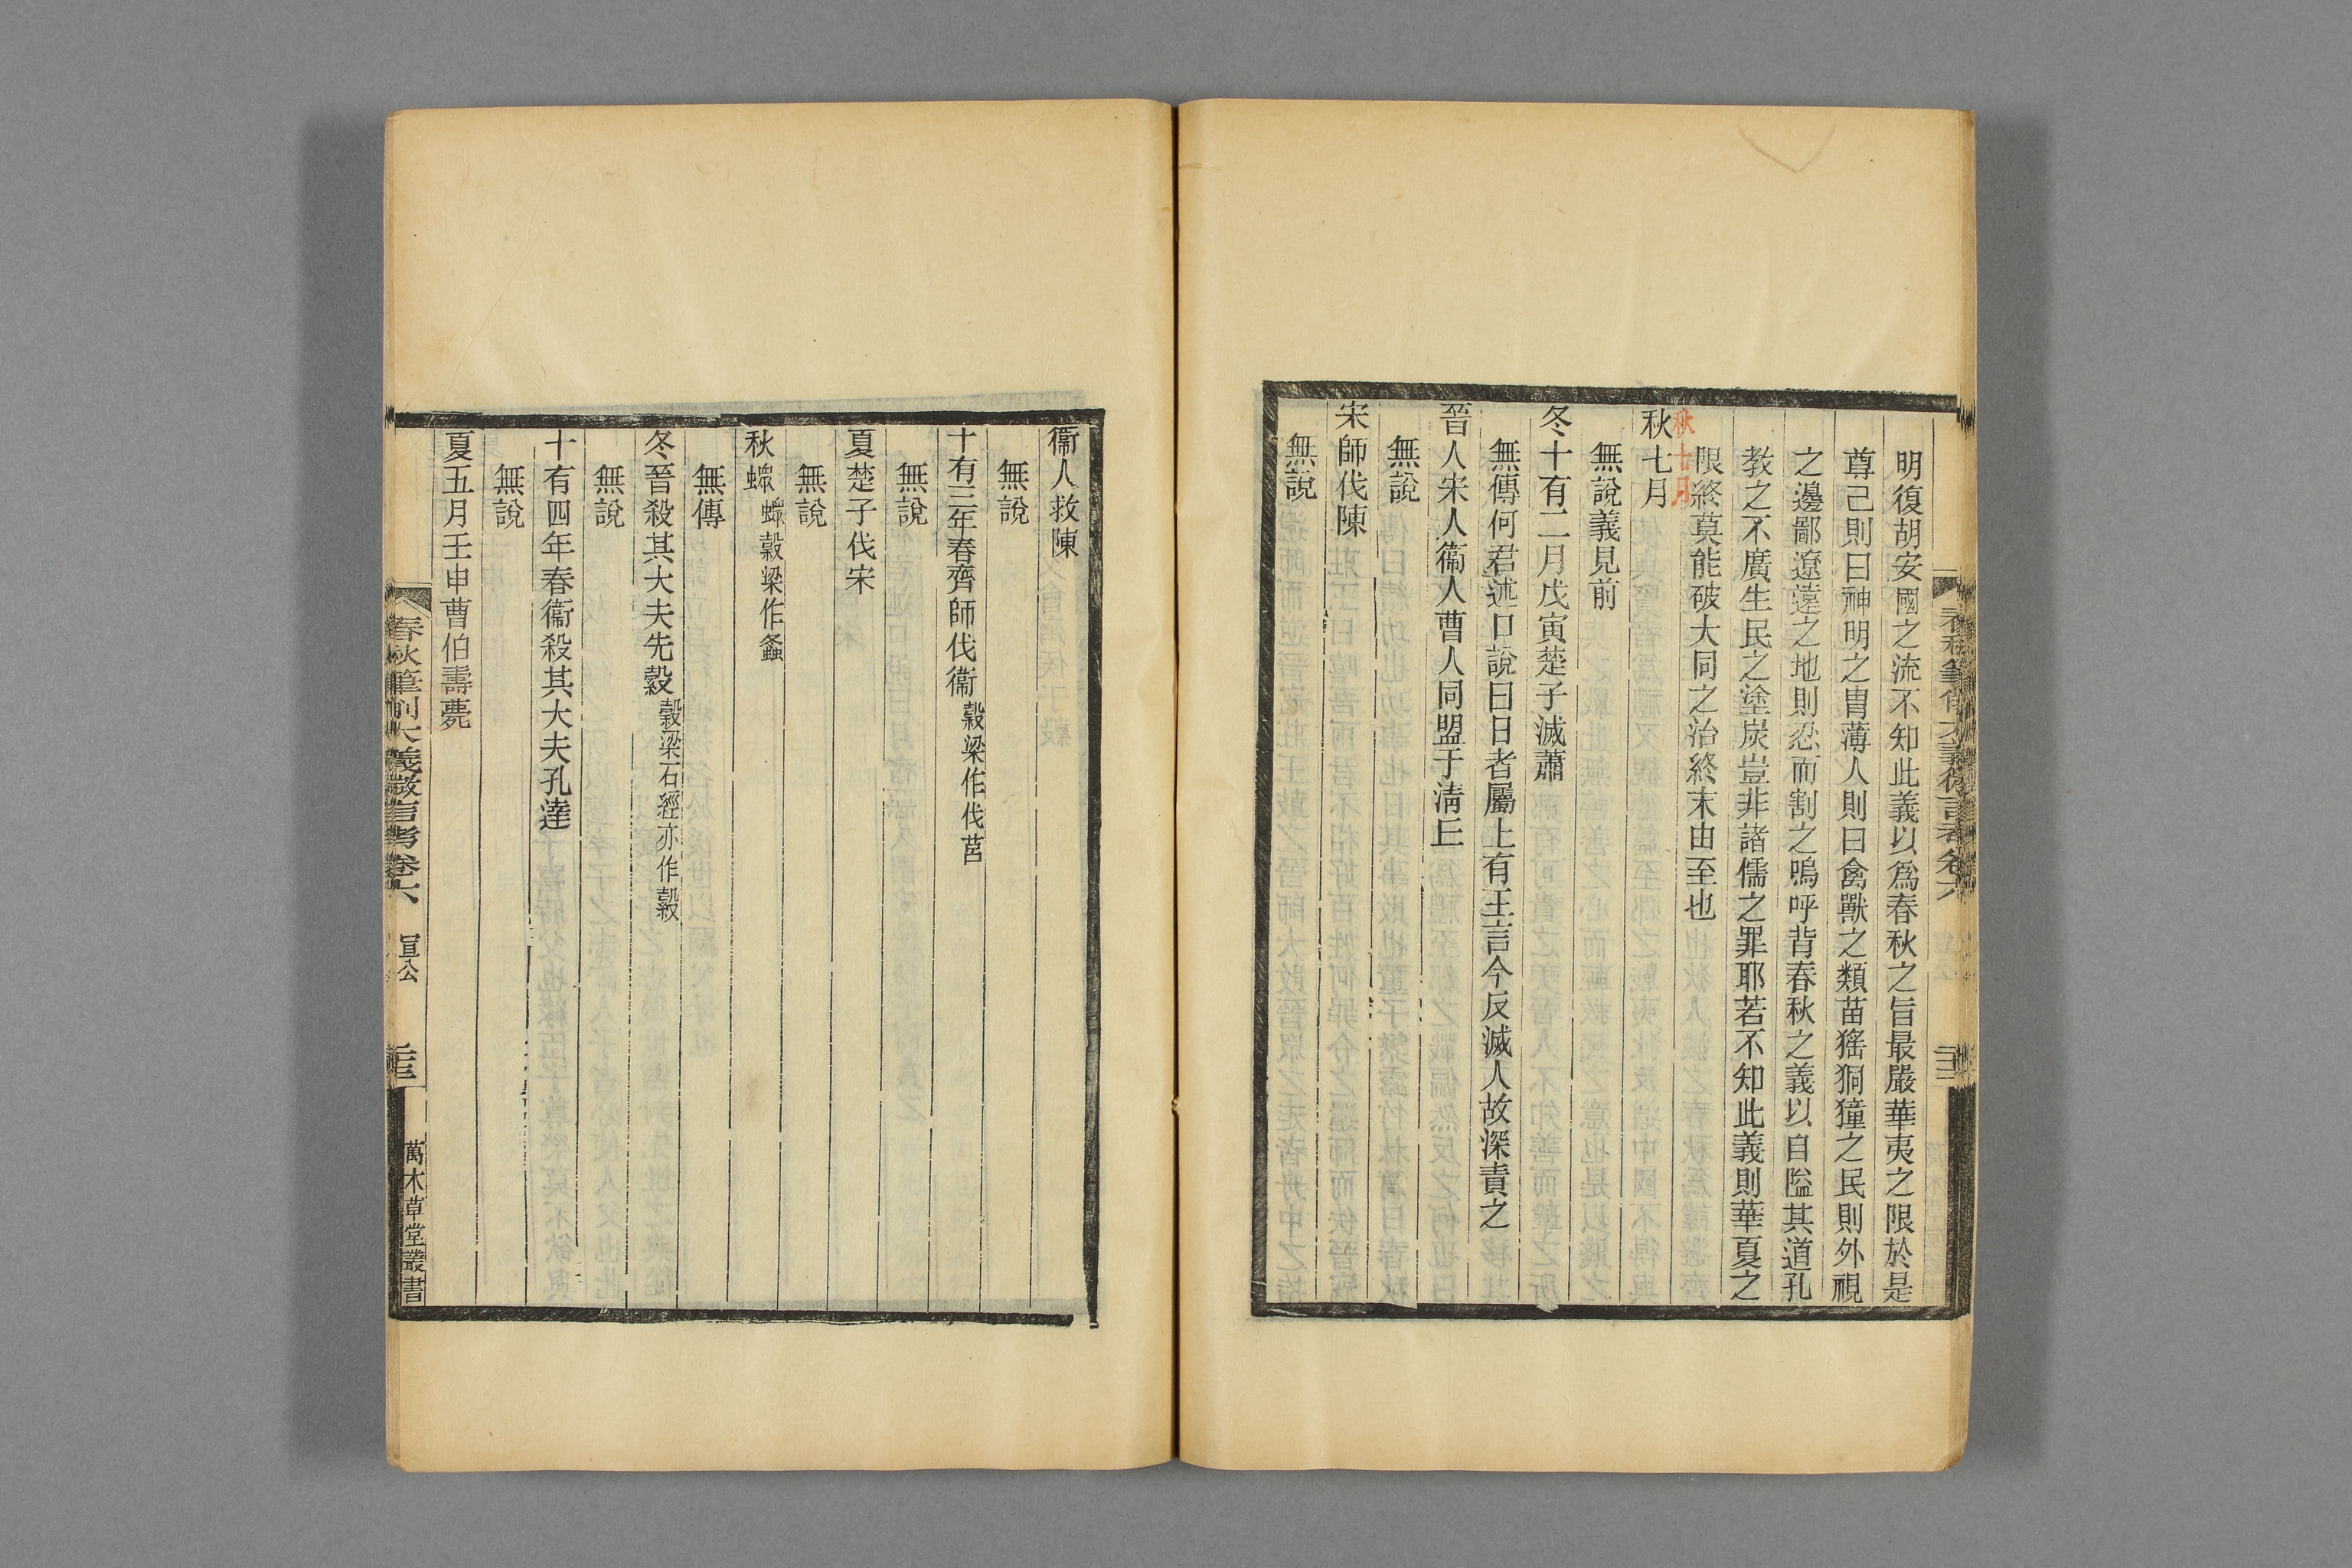 明復胡安國之流不知此義以爲春秋之旨最嚴華夷之限於是
尊己則曰神明之胄薄人則曰禽獸之類苗猺狪獞之民則外視
之邊鄙遼遠之地則忍而割之嗚呼背春秋之義以自隘其道孔
教之不廣生民之塗炭豈非諸儒之罪耶若不知此義則華夏之
限終莫能破大同之治終末由至也
秋七月
秋七月
無說義見前
冬十有二月戊寅楚子滅蕭
無傳何君述口說曰日者屬上有王言今反滅人故深責之
晉人宋人衞人曹人同盟于淸丘
無說
宋師伐陳
無說
衞人救陳
無說
十有三年春齊師伐衞 榖梁作伐莒
無說
夏楚子伐宋
無說
秋螽 螽榖梁作螽
無傳
冬晉殺其大夫先縠 榖梁石經亦作縠
無說
十有四年春衞殺其大夫孔達
無說
夏五月壬申曹伯壽薨
春秋筆削大義微言考卷六 宣公
萬木草堂叢書